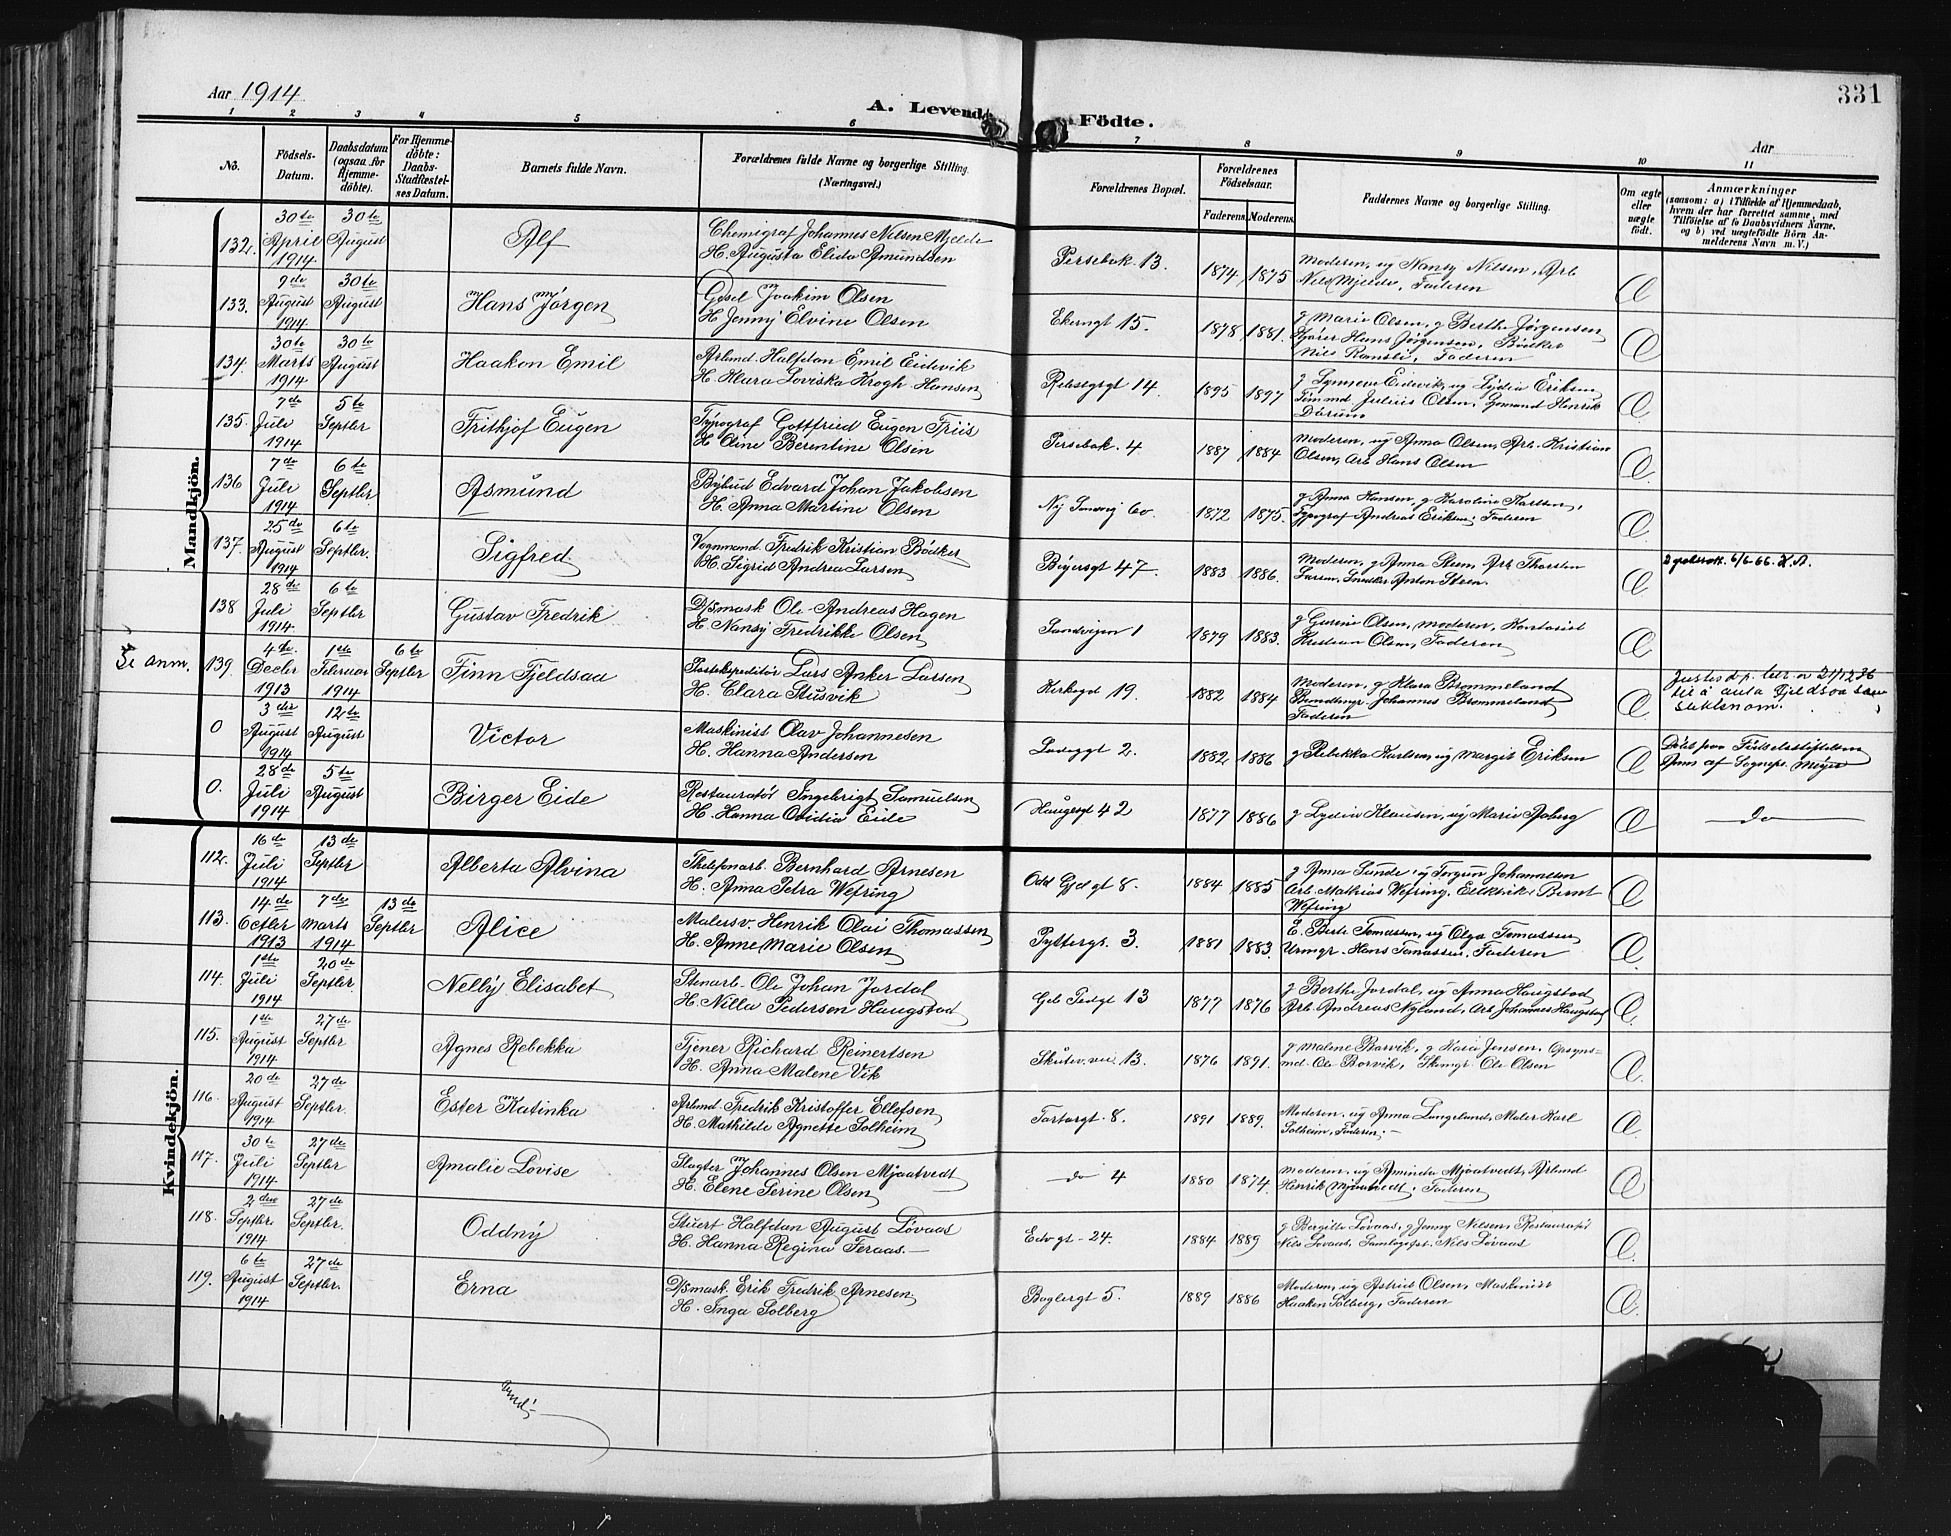 Aar 1914
A. Levende Födte.
331
Aar
1 2 3 4 5 6 7 8 9 10 11
No.
Födsels-Datum.
Daabsdatum (ogsaa for Hjemme-döbte).
For Hjemme-döbte: Daabs-Stadfæstel-ses Datum.
Barnets fulde Navn.
Forældrenes fulde Navne og borgerlige Stilling.
(Næringsvei.)
Forældrenes Bopæl.
Forældrenes Födselsaar.
Faderens. Moderens.
Faddernes Navne og borgerlige Stilling.
Om ægte eller uægte födt.
Anmærkninger
(saasom: a) i Tilfælde af Hjemmedaab,
hvem der har forrettet samme, med
Tilföielse af to Daabsvidners Navne,
og b) ved uægtefödte Börn An-
melderens Navn m. V.)
Mandkjön.
132. 30te April 1914 30te August Alf
Chemigraf Johannes Nilsen Mjelde
H. Augusta Elida Amundsen
Persebak. 13. 1874 1875
Moderen, ug Nansy Nilsen, Arb
Nils Mjelde, Faderen
133. 9de August 1914 30te August Hans Jörgen
Gdsel Joakim Olsen
H. Jenny Elvine Olsen
Ekerngt 15. 1878 1881.
g Marie Olsen, g Berthe Jörgensen
Kjörer Hans Jörgensen, Bödker
Nils Ramsli, Faderen
134. 30te Marts 1914 30te August Haakon Emil
Arbmd Halfdan Emil Eidevik
H. Klara Loviska Krogh Hansen
14. 1895 1897
Eidevik, ug Lydia Eriksen
Tömmd Julius Olsen, Henrik
135. 7de Juli 1914 5te Septbr Frithjof Eugen
Typograf Gottfried Eugen Friis
H. Oline Berentine Olsen
Persebak. 4 1887 1884
Moderen, ug Anna Olsen, Arb. Kristian
Olsen, Arb Hans Olsen
136 7de Juli 1914 6te Septbr Asmund
Bybud Edvard Johan Jakobsen
H. Anna Martine Olsen
Ny Sandvig 60. 1872 1875.
g Anna Hansen, g Karoline Karlsen,
Typograf Andreas Eriksen, Faderen
137. 25de August 1914 6te Septbr. Sigfred
Vognmand Fredrik Kristian Bödker
H. Sigrid Andrea Larsen
Böyersgt 47. 1883 1886.
Moderen, g Anna Steen, Arb Thorsten
Larsen, Smedker Anton Steen
6/6 66. K.A.
138 28de Juli 1914 6te Septbr Gustav Fredrik
D/Smask Ole Andreas Hagen
H. Nansy Fredrikke Olsen
Sandvigen 1 1879 1883.
g Gurine Olsen, Moderen, Kontorist
Kristian Olsen, Faderen
Se anm. 139. 4de Decbr 1913 1ste Februar 1914 6te Septbr Finn Fjeldsaa
Postekspeditör Lars Anker Larsen
H. Clara Stusvik
Kirkegt 19. 1882 1884
Moderen, g Klara Brommeland
Johannes Brommeland
Faderen
til å anta Fjeldsaa som
slektsnavn.
0 3die August 1914 12te August Victor
Maskinist Olav Johannesen
H. Hanna Andersen
Ladeggt 2. 1882 1886
g Rebekka Karlsen, ug Margit Eriksen
Döbt paa Födselsstiftelsen
af Sognepr. Meyer
0. 28de Juli 1914 5te August Birger Eide
Restauratör Ingebrigt Samuelsen
H. Hanna Ovidia Eide
Haugegt 42 1877 1886
g Lydia Klausen, ug Marie
do
Kvindekjön.
112. 16de Juli 1914 13de Septbr Alberta Alvina
Thelefonarb. Bernhard Arnesen
H. Anna Petra Wefring
Odd Gjelgt 8. 1884 1885
g Anna Sunde, ug Torgun Johannesen
Arb. Mathias Wefring, Elektrik. Bernt
Wefring
113. 14de Octbr 1913 7de Marts 1914 13de Septbr Alice
Malersv. Henrik Olai Thomassen
H. Anne Marie Olsen
Pyttergt. 3. 1881 1883.
E. Berte Tomassen, ug Olga Tomassen
Urmgr. Hans Tomassen, Faderen
114. 1ste Juli 1914 20de Septbr. Nelly Elisabet
Stenarb. Ole Johan Jordal
H. Nilla Pedersen Haugstad
13 1877 1876
g Berthe Jordal, ug Anna Haugstad
Arb. Andreas Nyland, Arb. Johannes Haugstad
115. 1ste August 1914 27de Septbr. Agnes Rebekka
Tjener Richard Reinertsen
H. Anna Malene Vik
Skutev. vei 13. 1876 1891.
g Malene Barvik, g Kaia Jensen, Opsyns-
md. Ole Borvik, Skomgr. Ole Olsen
116. 20de August 1914 27de Septbr. Ester Katinka
Arbmd Fredrik Kristoffer Ellefsen
H. Mathilde Agnette Solheim
Tartargt. 8. 1891 1889.
Moderen, ug Anna Langeland, Maler Karl
Solheim, Faderen.
117. 30te Juli 1914 27de Septbr Amalie Lovise
Slagter Johannes Olsen Mjaatvedt
H. Elene Serine Olsen
do 4 1880 1874.
Moderen, ug Aminda Mjaatvedt, Arbmd
Henrik Mjaatvedt, Faderen
118. 2den Septbr. 1914 27de Septbr. Oddny
Stuert Halfdan August Lövaas
H. Hanna Regina Feraas.
Edv gt. 24. 1884 1889
g Bergitte Lövaas, g Jenny Nilsen, Restauratör
Nils Lövaas, Nils Lövaas
119. 6te August 1914 27de Septbr. Erna
D/Smask. Erik Fredrik Arnesen
H. Inga Solberg
Baglergt 5. 1889 1886
Moderen, ug Astrid Olsen, Maskinist
Haakon Solberg, Faderen
Vend!